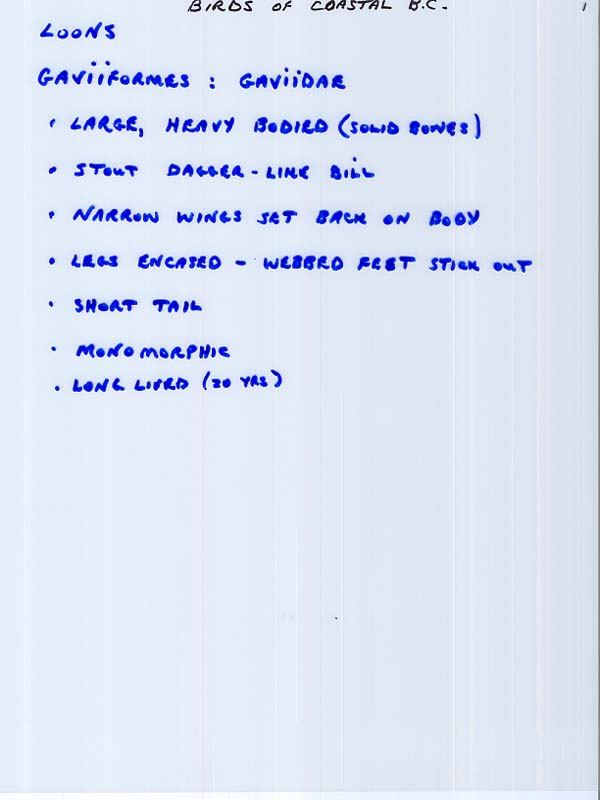 BIRDS OF COASTAL B.C. 1
LOONS
GAVIIFORMES : GAVIIDAE
• LARGE, HEAVY BODIED (SOLID BONES)
• STOUT DAGGER-LIKE BILL
• NARROW WINGS SET BACK ON BODY
• LEGS ENCASED - WEBBED FEET STICK OUT
• SHORT TAIL
• MONOMORPHIC
• LONG LIVED (20 YRS)